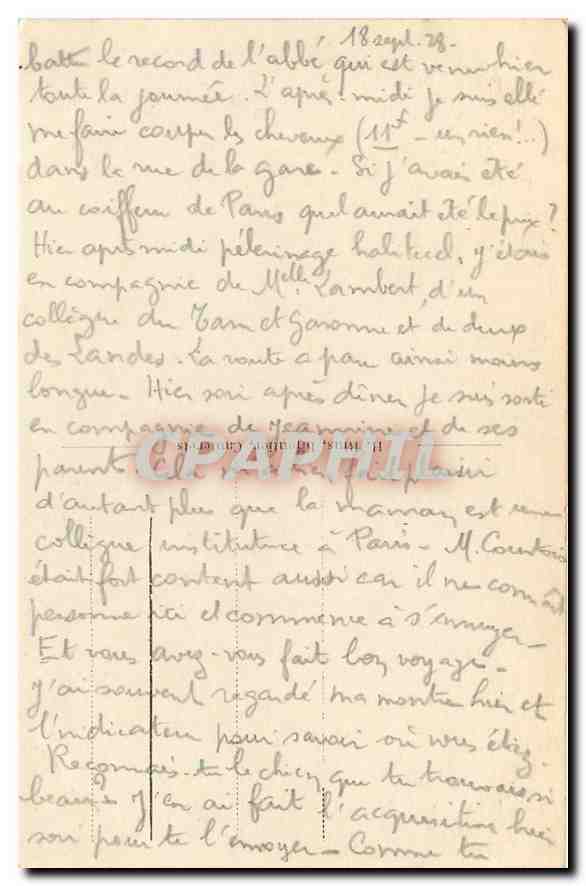 18 sept. 28-
battre le record de l'abbé qui est venu hier
toute la journée. L'après-midi je suis allé
me faire couper les cheveux (11f - un rien!...)
dans la rue de la gare - Si j'avais été
au coiffeur de Paris quel aurait été le prix?
Hier après midi pèlerinage habituel, j'étais
en compagnie de Melle Lambert, d'un
collègue du Tarn et Garonne et de deux
des Landes - La route a paru ainsi moins
longue - Hier soir après dîner je suis sorti
en compagnie de Jeannine et de ses
parents
d'autant plus que la maman est une
collègue institutrice à Paris - M. Courtois
était fort content aussi car il ne connaît
personne ici et commence à s'ennuyer -
Et vous avez-vous fait bon voyage -
J'ai souvent regardé ma montre hier et
l'indicateur pour savoir où vous étiez.
Reconnais-tu le chien que tu trouvais si
beau? J'en ai fait l'acquisition hier
soir pour te l'envoyer - Comme tu
CPAPHIL
Cauterets